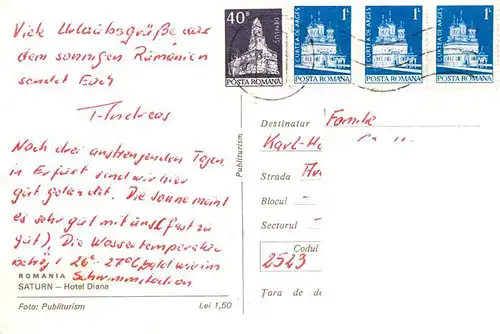 Viele Urlaubsgrüße aus
dem sonnigen Rumänien
sendet Euch
Andreas
Nach drei anstrengenden Tagen
in Erfurt sind wir hier
gut gelandet. Die Sonne meint
es sehr gut mit uns (fast zu
gut). Die Wassertemperatur
beträgt 26°-27°C, bald wie im
Schwimmstadion
ROMANIA
SATURN – Hotel Diana
Foto: Publiturism
Lei 1,50
Publiturism
40B
DENSUŞ
POSTA ROMANA
1L
CURTEA DE ARGEŞ
POSTA ROMANA
1L
CURTEA DE ARGEŞ
POSTA ROMANA
1L
CURTEA DE ARGEŞ
POSTA ROMANA
Destinatar Familie
Karl-
Strada
Blocul –
Sectorul –
Codul
2523
Ţara de de